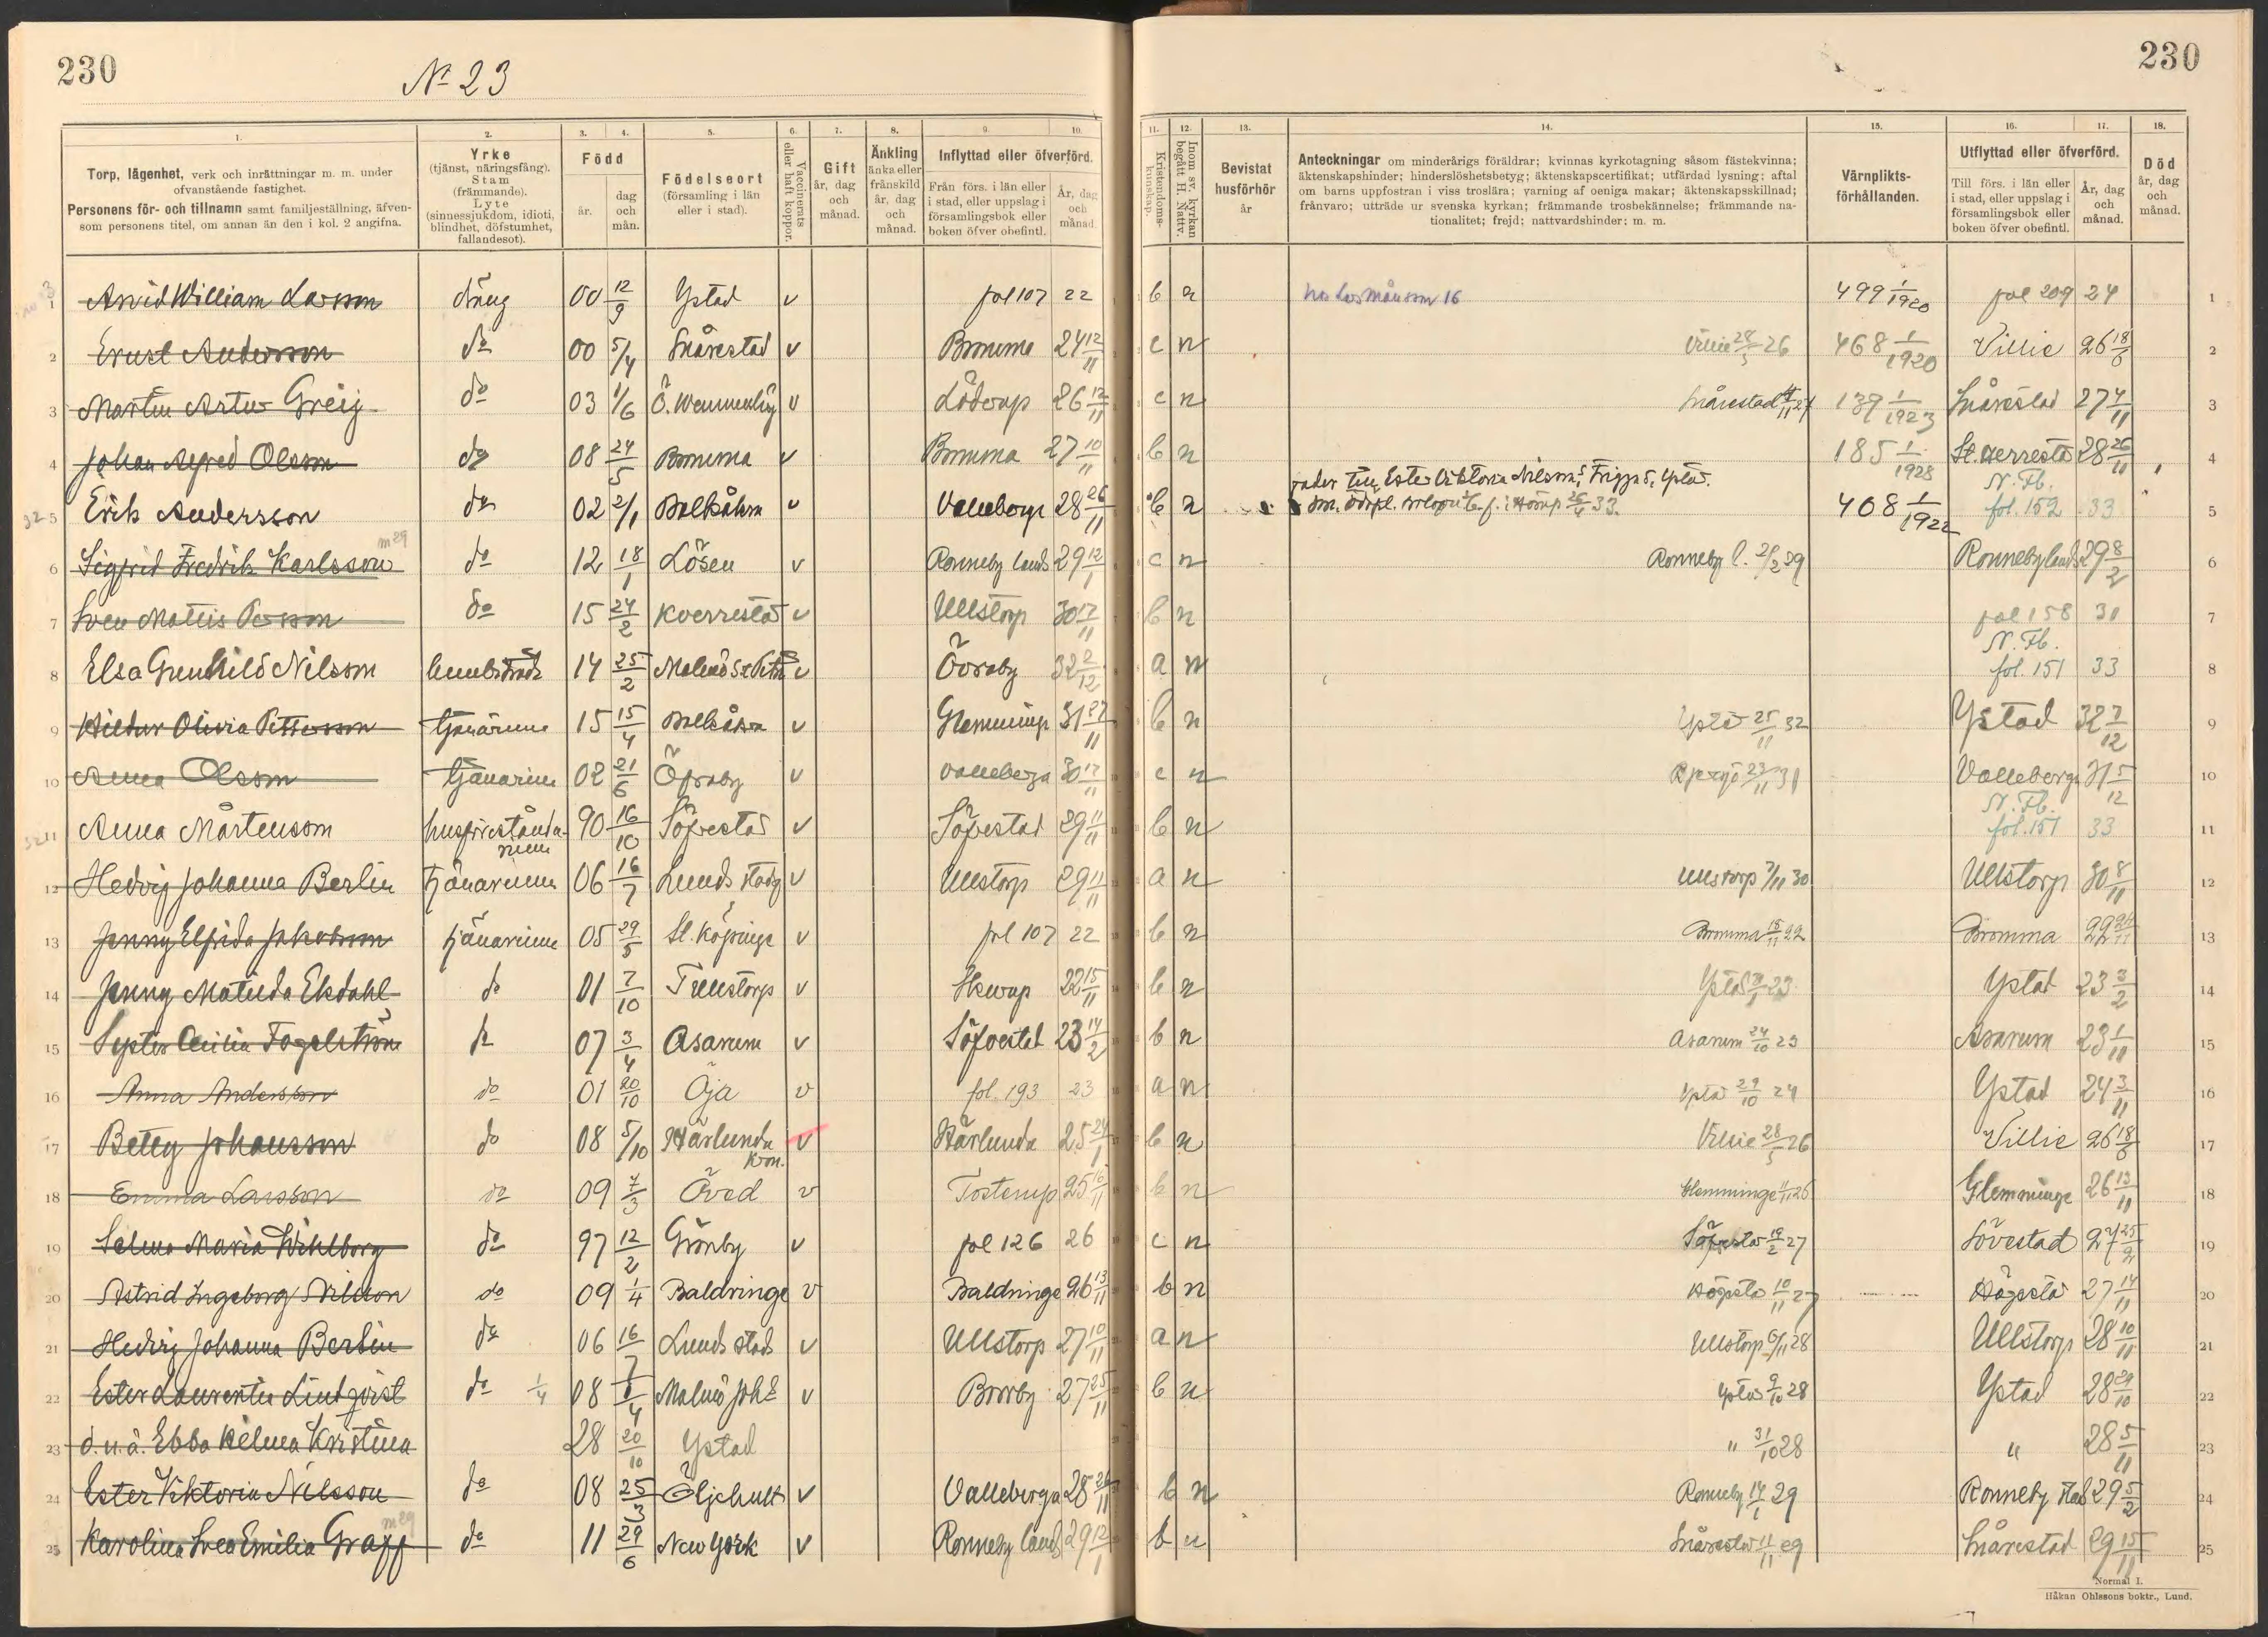 230
№ 23
230
1.
2.
3.
4.
5.
6.
7.
8.
9.
10.
11.
12.
13.
14.
15.
16.
17.
18.
Torp, lägenhet, verk och inrättningar m. m. under
ofvanstående fastighet.
Personens för- och tillnamn samt familjeställning, äfven-
som personens titel, om annan än den i kol. 2 angifna.
Yrke
(tjänst, näringsfång).
Stam
(främmande).
Lyte
(sinnessjukdom, idioti,
blindhet, döfstumhet,
fallandesot).
Född
år.
dag
och
mån.
Födelseort
(församling i län
eller i stad).
Vaccinerats
eller haft koppor.
Gift
år, dag
och
månad.
Änkling
änka eller
frånskild
år, dag
och
månad.
Inflyttad eller öfverförd.
Från förs. i län eller
i stad, eller uppslag i
församlingsbok eller
boken öfver obefintl.
År, dag
och
månad.
Kristendoms-
kunskap.
Inom sv. kyrkan
begått H. Nattv.
Bevistat
husförhör
år
Anteckningar om minderårigs föräldrar; kvinnas kyrkotagning såsom fästekvinna;
äktenskapshinder; hinderslöshetsbetyg; äktenskapscertifikat; utfärdad lysning; aftal
om barns uppfostran i viss troslära; varning af oeniga makar; äktenskapsskillnad;
frånvaro; utträde ur svenska kyrkan; främmande trosbekännelse; främmande na-
tionalitet; frejd; nattvardshinder; m. m.
Värnplikts-
förhållanden.
Utflyttad eller öfverförd.
Till förs. i län eller
i stad, eller uppslag i
församlingsbok eller
boken öfver obefintl.
År, dag
och
månad.
Död
år, dag
och
månad.
1 Arvid William Larsson dräng 00 12/9 Ystad v fol 107 22 b n 16 499 1/1920 fol 209 24 1
2 Ernst Andersson do 00 5/4 Snårestad v Bromma 24 12/11 c n Villie 28/5 26 468 1/1920 Villie 26 18/6 2
3 Martin Artur Greig do 03 1/6 Ö. Wemmenhög v Löderup 26 12/11 c n Snårestad 4/11 27 139 1/1923 Snårestad 27 4/11 3
4 Johan Alfred Olsson do 08 24/5 Bromma v Bromma 27 10/11 b n 185 1/1928 St. Herrestad 28 26/11 4
fader till Ester Viktoria Nilssons Frigga Ystad.
N. Fb.
5 Erik Andersson do 02 2/1 Balkåkra v Valleberga 28 26/11 b n 33. 408 1/1922 fol. 152 33 5
m 29
6 Sigfrid Fredrik Karlsson do 12 18/1 Lösen v Ronneby lands 29 12/1 c n Ronneby l. 2/2 29 Ronneby lands 29 8/2 6
7 Sven Mattis Persson do 15 24/2 Kverrestad v Ullstorp 30 17/11 b n fol 158 31 7
N. Fb.
8 Elsa Gunhild Nilsson 14 25/2 Malmö S:t Petri v Övraby 32 2/12 a n fol. 151 33 8
9 Hildur Olivia Pettersson tjänarinna 15 15/4 Balkåkra v Glemminge 31 27/11 b n Ystad 25/11 32 Ystad 32 7/12 9
10 Anna Olsson tjänarinna 02 21/6 Öfraby v Valleberga 30 17/11 c n 23/11 31 Valleberga 31 5/12 10
N. Fb.
11 Anna Mårtensson husföreståndarinna 90 16/10 Söfvestad v Söfvestad 29 11/11 b n fol. 151 33 11
12 Hedvig Johanna Berlin tjänarinna 06 16/7 Lunds stads v Ullstorp 29 11/11 a n Ullstorp 7/11 30 Ullstorp 30 8/11 12
13 Jenny Elfrida Jakobsson tjänarinna 05 29/5 St. Köpinge v fol 107 22 b n Bromma 18/11 22 Bromma 22 24/11 13
14 Jenny Matilda Ekdahl do 01 7/10 Trelleborg v Skurup 22 15/11 b n Ystad 31/1 23 Ystad 23 3/2 14
15 Cecilia Fogelström do 07 3/4 Asarum v Söfvestad 23 14/2 b n Asarum 24/10 23 Asarum 23 1/11 15
16 Anna Andersson do 01 20/10 Öja v fol. 193 23 a n Ystad 29/10 24 Ystad 24 3/11 16
17 Betty Johansson do 08 5/10 Härlunda Kron. v Härlunda 25 24/1 b n Villie 28/5 26 Villie 26 18/6 17
18 Emma Larsson do 09 7/3 Öved v Tosterup 25 16/11 b n Glemminge 11/11 26 Glemminge 26 13/11 18
19 Selma Maria Wihlborg do 97 12/2 Grönby v fol 126 26 c n Söfvestad 19/2 27 Sövestad 27 25/2 19
20 Astrid Ingeborg Nilsson do 09 1/4 Baldringe v Baldringe 26 13/11 b n Högestad 10/11 27 Högestad 27 14/11 20
21 Hedvig Johanna Berlin do 06 16/7 Lunds stads v Ullstorp 27 10/11 a n Ullstorp 6/11 28 Ullstorp 28 10/11 21
22 Ester Laurentia Lindqvist do 1/4 08 1/4 Malmö Joh:s v Borrby 27 25/11 b n Ystad 9/10 28 Ystad 28 29/10 22
23 d. u. ä. Ebba Helma Kristina 28 20/10 Ystad " 31/10 28 " 28 5/11 23
24 Ester Viktoria Nilsson do 08 25/3 Öljehult v Valleberga 28 26/11 b n Ronneby 14/1 29 Ronneby stad 29 5/2 24
m 29
25 Karolina Svea Emilia Graff do 11 29/6 New York v Ronneby lands 29 12/1 b n Snårestad 11/11 29 Snårestad 29 15/11 25
Normal I.
Håkan Ohlssons boktr., Lund.